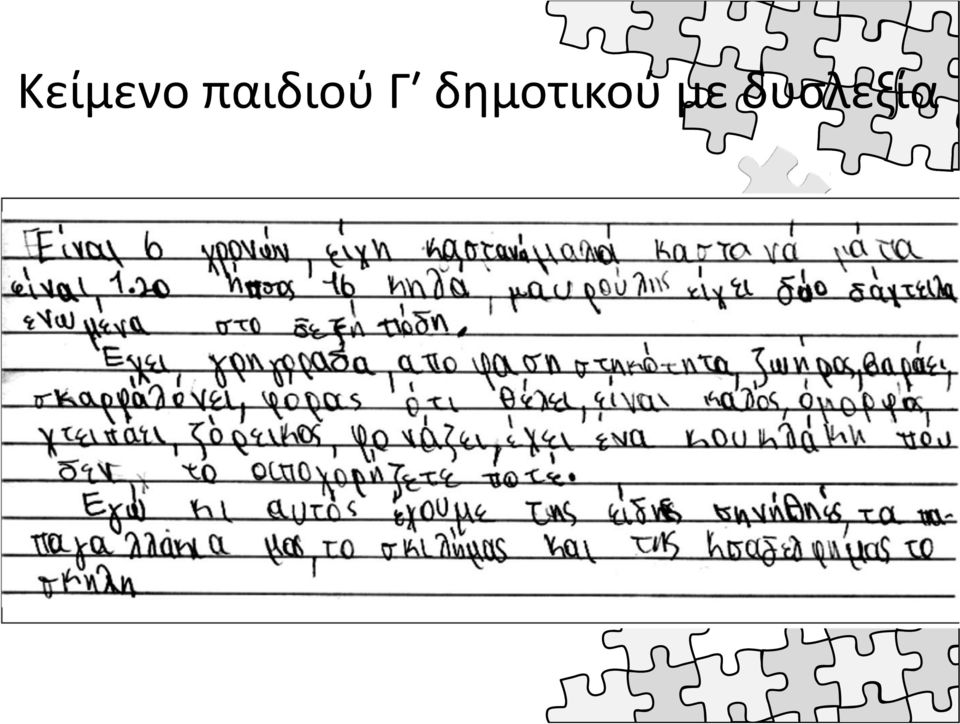 Κείμενο παιδιού Γ’ δημοτικού με δυσλεξία
Είναι 6 χρονών, είχη καστανάμαλιά καστανά μάτα
είναι 1.20 ήπσος 16 κηλά, μαυρούλης είχει δύο δάχτειλα
ενωμένα στο δεξή πόδη.
Έχει γρηγοράδα, αποφασηστηκότητα, ζωηρος, βαράει,
σκαρφάλόνει, φοράς ότι θέλει, είναι καλός, όμορφος,
χτειπάει, ζόρεικος, φονάζει, έχει ένα κουκλάκη πόυ
δεν το αποχορήζετέ ποτέ.
Εγώ κι αυτός έχουμε της είδηες σηνήθηες, τα πα-
παγαλλάκια μας, το σκιλήμας και της κσαδελφήμας το
σκήλη